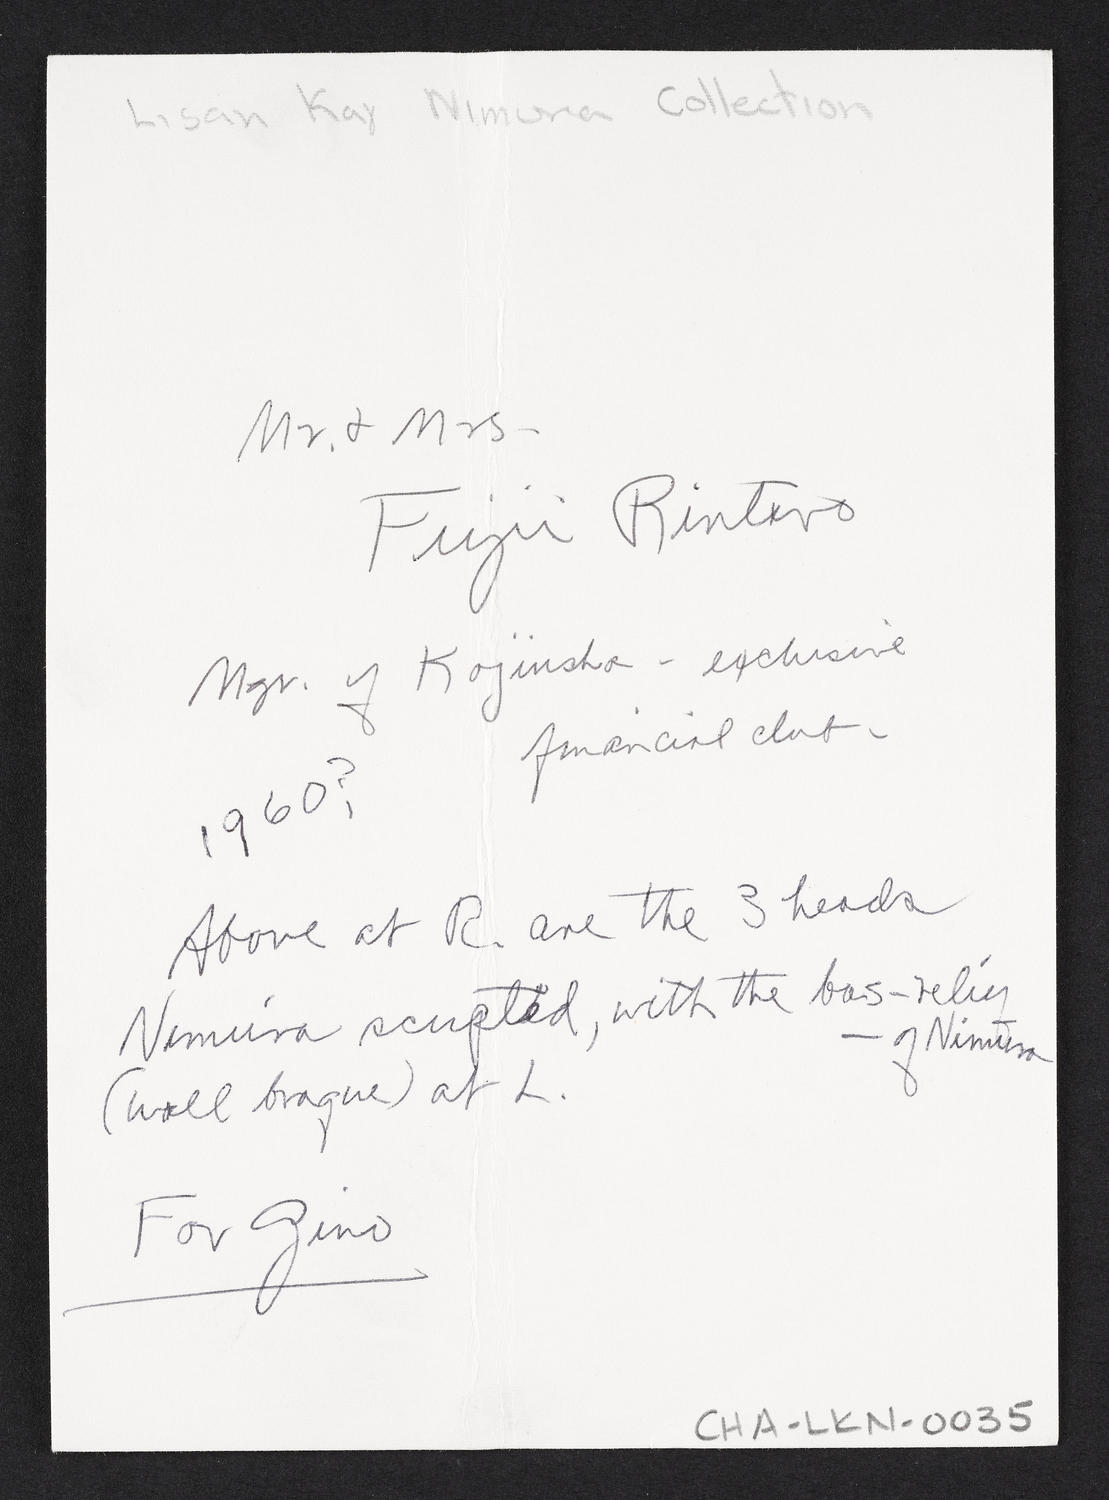 Lisan Kay Nimura Collection
Mr. & Mrs-
Fujii Rintaro
Mgr. of Kojinsha - exclusive
financial club -
1960?
Above at R. are the 3 heads
Nimura scupted, with the bas-relief
- of Nimura
(wall braque) at L.
For Gino
CHA-LKN-0035